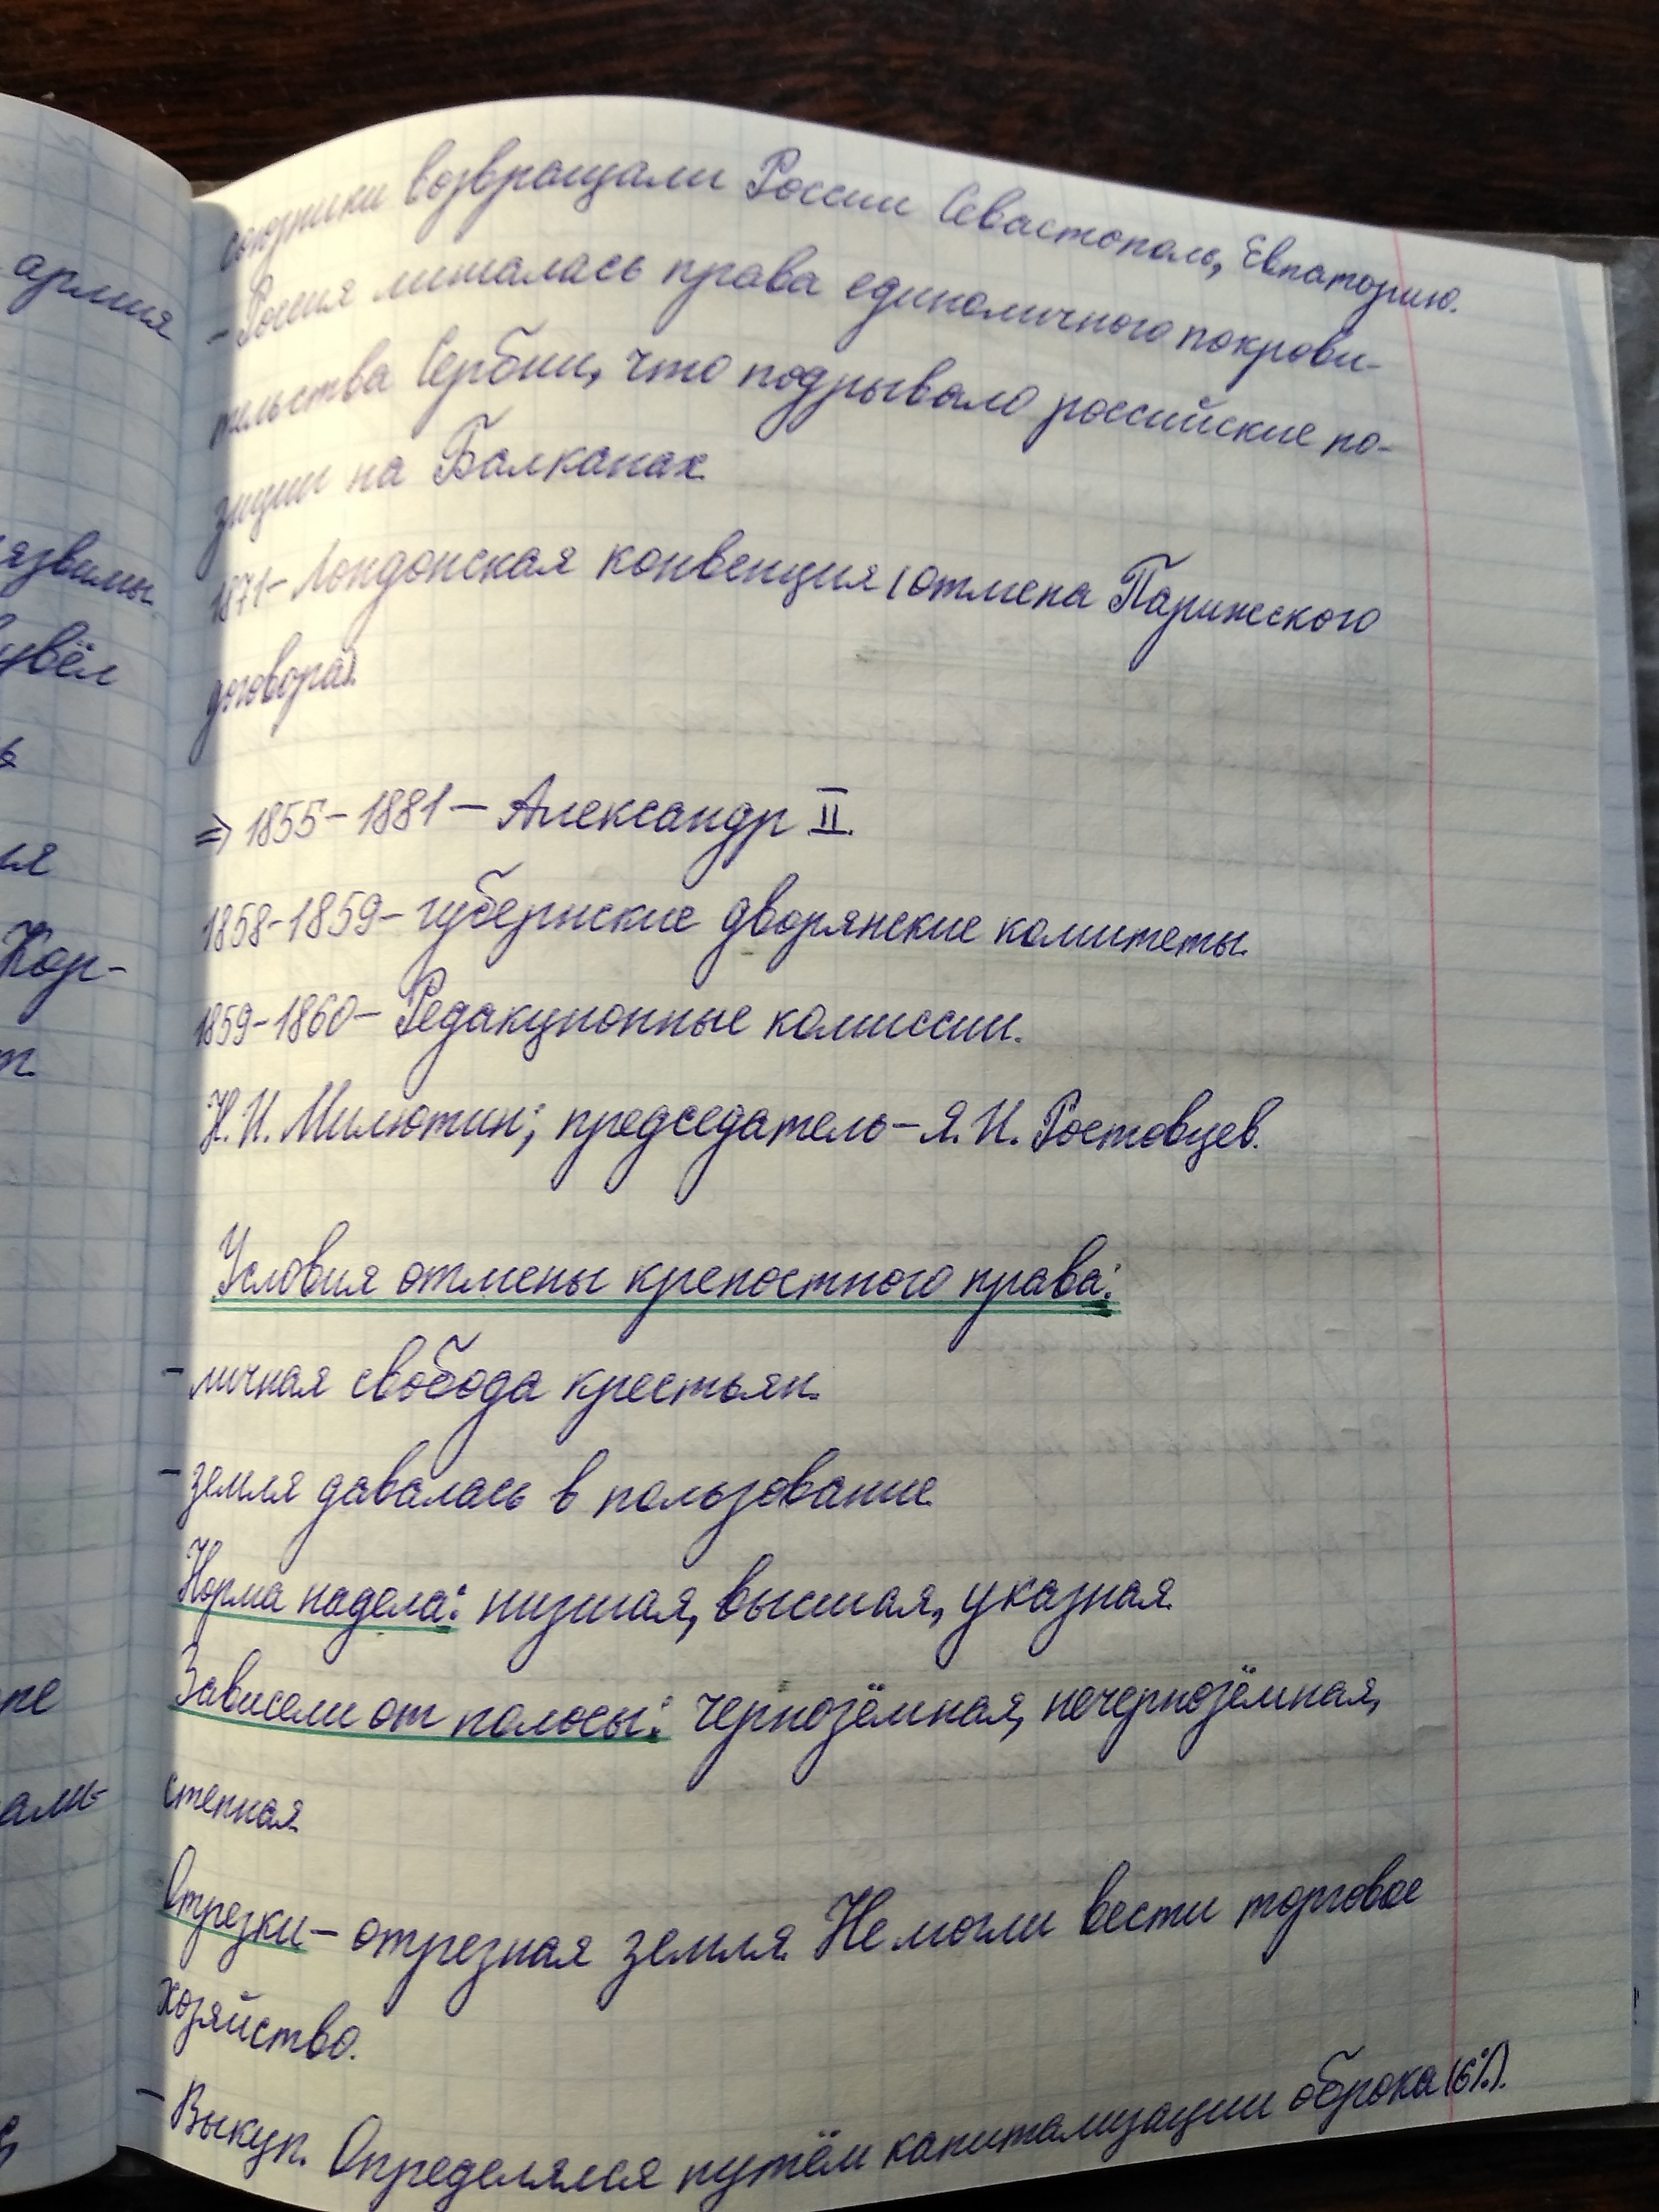 союзники возвращали России Севастополь, Евпаторию.
- Россия лишалась права единоличного покрови-
тельства Сербии, что подрывало российские по-
зиции на Балканах.
1871- Лондонская конвенция (отмена Парижского
договора).
=> 1855-1881 - Александр II.
1858-1859- губернские дворянские комитеты.
1859-1860- Редакционные комиссии.
Н.И. Милютин; председатель - Я.И. Ростовцев.
Условия отмены крепостного права:
- личная свобода крестьян.
- земля давалась в пользование.
Норма надела: низшая, высшая, указная.
Зависели от полосы: чернозёмная, нечернозёмная,
степная.
Отрезки - отрезная земля. Не могли вести торговое
хозяйство.
- Выкуп. Определялся путём капитализации оброка (6%).
армия
язвимы.
Кор-